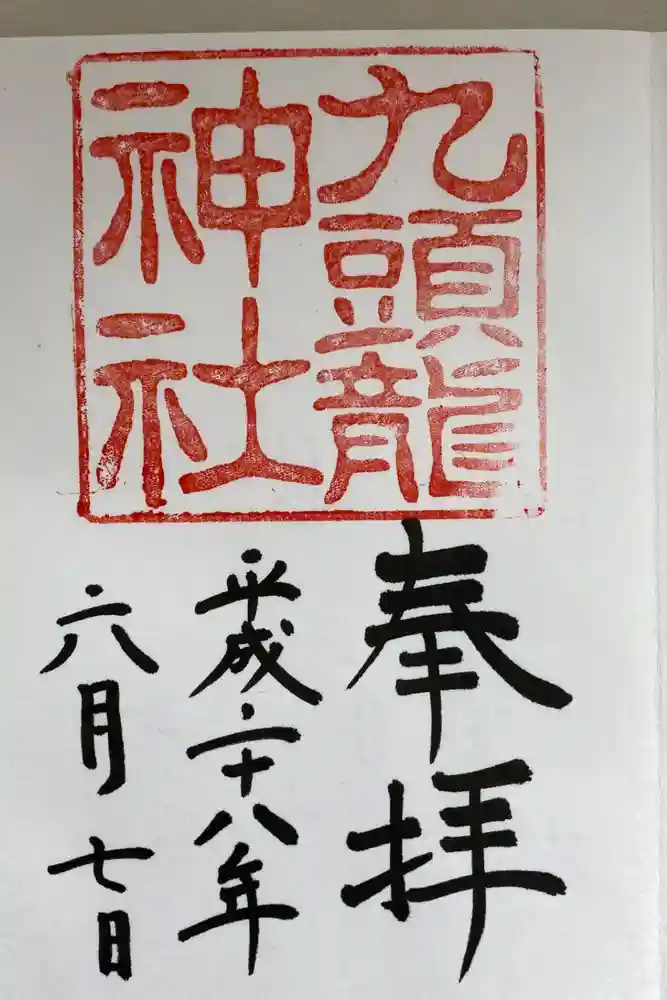 九頭龍
神社
奉拝
平成二十八年
六月七日